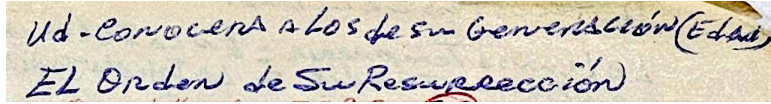 Ud-Conocera A Los de su Generación (Edad)
EL Orden de Su Resurrección